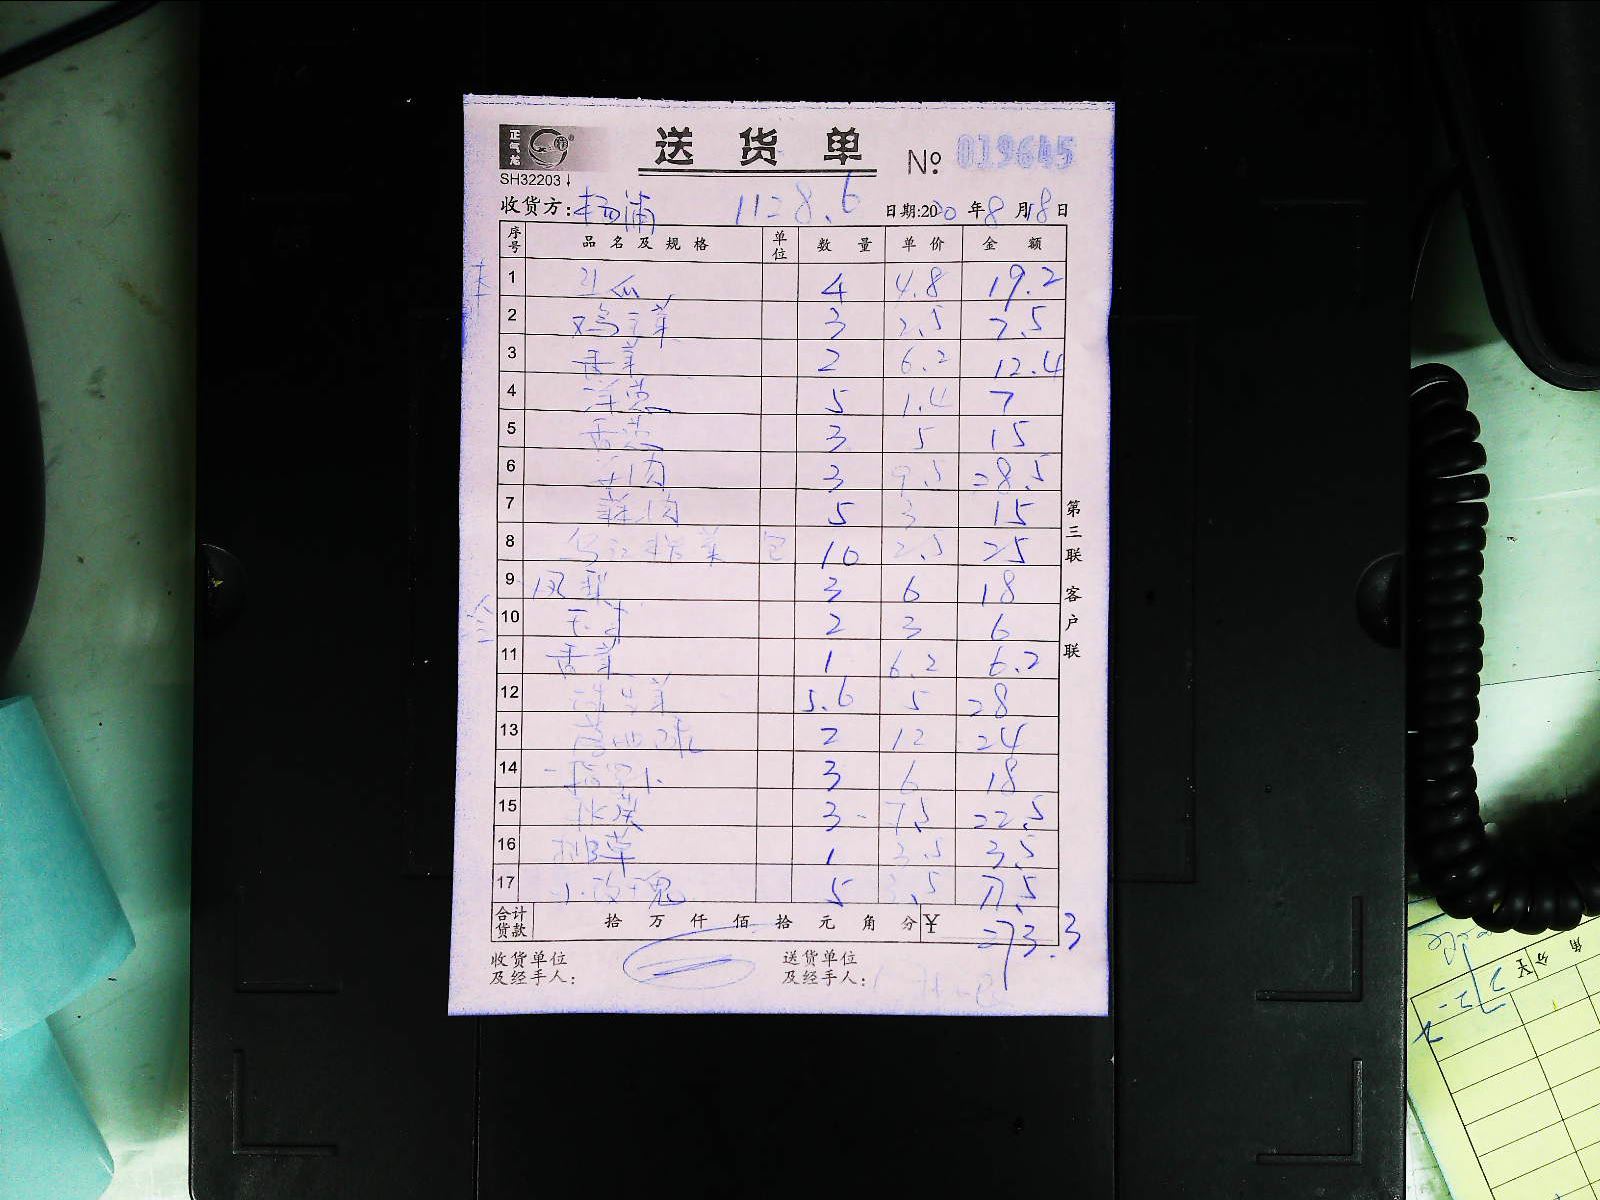 正气龙
送货单 № 019645
SH32203
收货方: 杨浦 1128.6 日期:2020年8月18日
序号 品名及规格 单位 数量 单价 金额
1 4 4.8 19.2
2 鸡毛菜 3 2.5 7.5
3 香菜 2 6.2 12.4
4 洋葱 5 1.4 7
5 香葱 3 5 15
6 3 9.5 28.5
7 5 3 15
8 乌江榨菜 包 10 2.5 25
9 凤梨 3 6 18
10 2 3 6
11 香菜 1 6.2 6.2
12 球生菜 5.6 5 28
13 2 12 24
14 3 6 18
15 3 7.5 22.5
16 1 3.5 3.5
17 小玫瑰 5 3.5 17.5
合计货款 拾 万 仟 佰 拾 元 角 分 ¥ 273.3
收货单位及经手人: 送货单位及经手人:
第三联 客户联